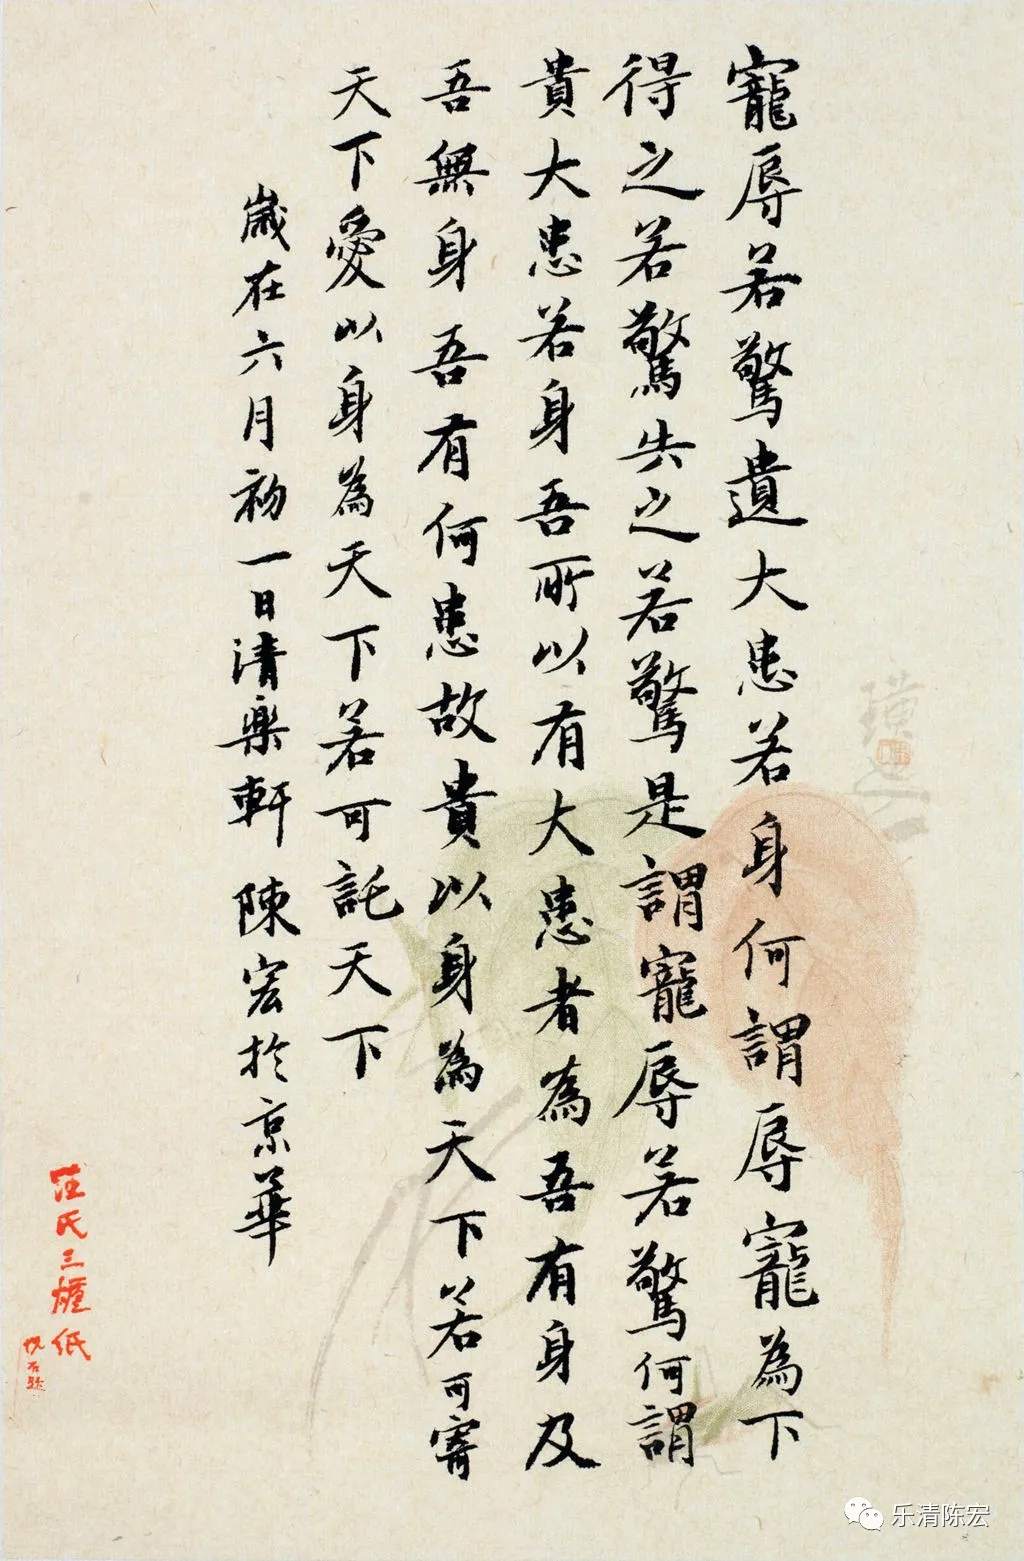 寵辱若驚遺大患若身何謂辱寵為下
得之若驚失之若驚是謂寵辱若驚何謂
貴大患若身吾所以有大患者為吾有身及
吾無身吾有何患故貴以身為天下若可寄
天下愛以身為天下若可託天下
歲在六月初一日清樂軒 陳宏於京華
汪氏三紙
乐清陈宏